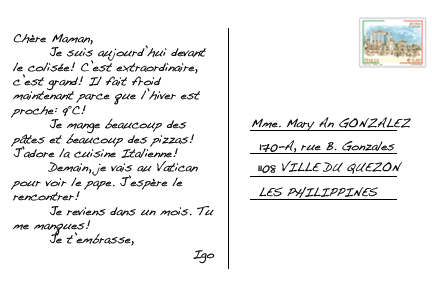 Chère Maman,
Je suis aujourd'hui devant
le colisée! C'est extraordinaire,
c'est grand! Il fait froid
maintenant parce que l'hiver est
proche: 9°C!
Je mange beaucoup des
pâtes et beaucoup des pizzas!
J'adore la cuisine Italienne!
Demain, je vais au Vatican
pour voir le pape. J'espère le
rencontrer!
Je reviens dans un mois. Tu
me manques!
Je t'embrasse,
Igo
Mme. Mary An GONZALEZ
170-A, rue B. Gonzales
1108 VILLE DU QUEZON
LES PHILIPPINES
ITALIA